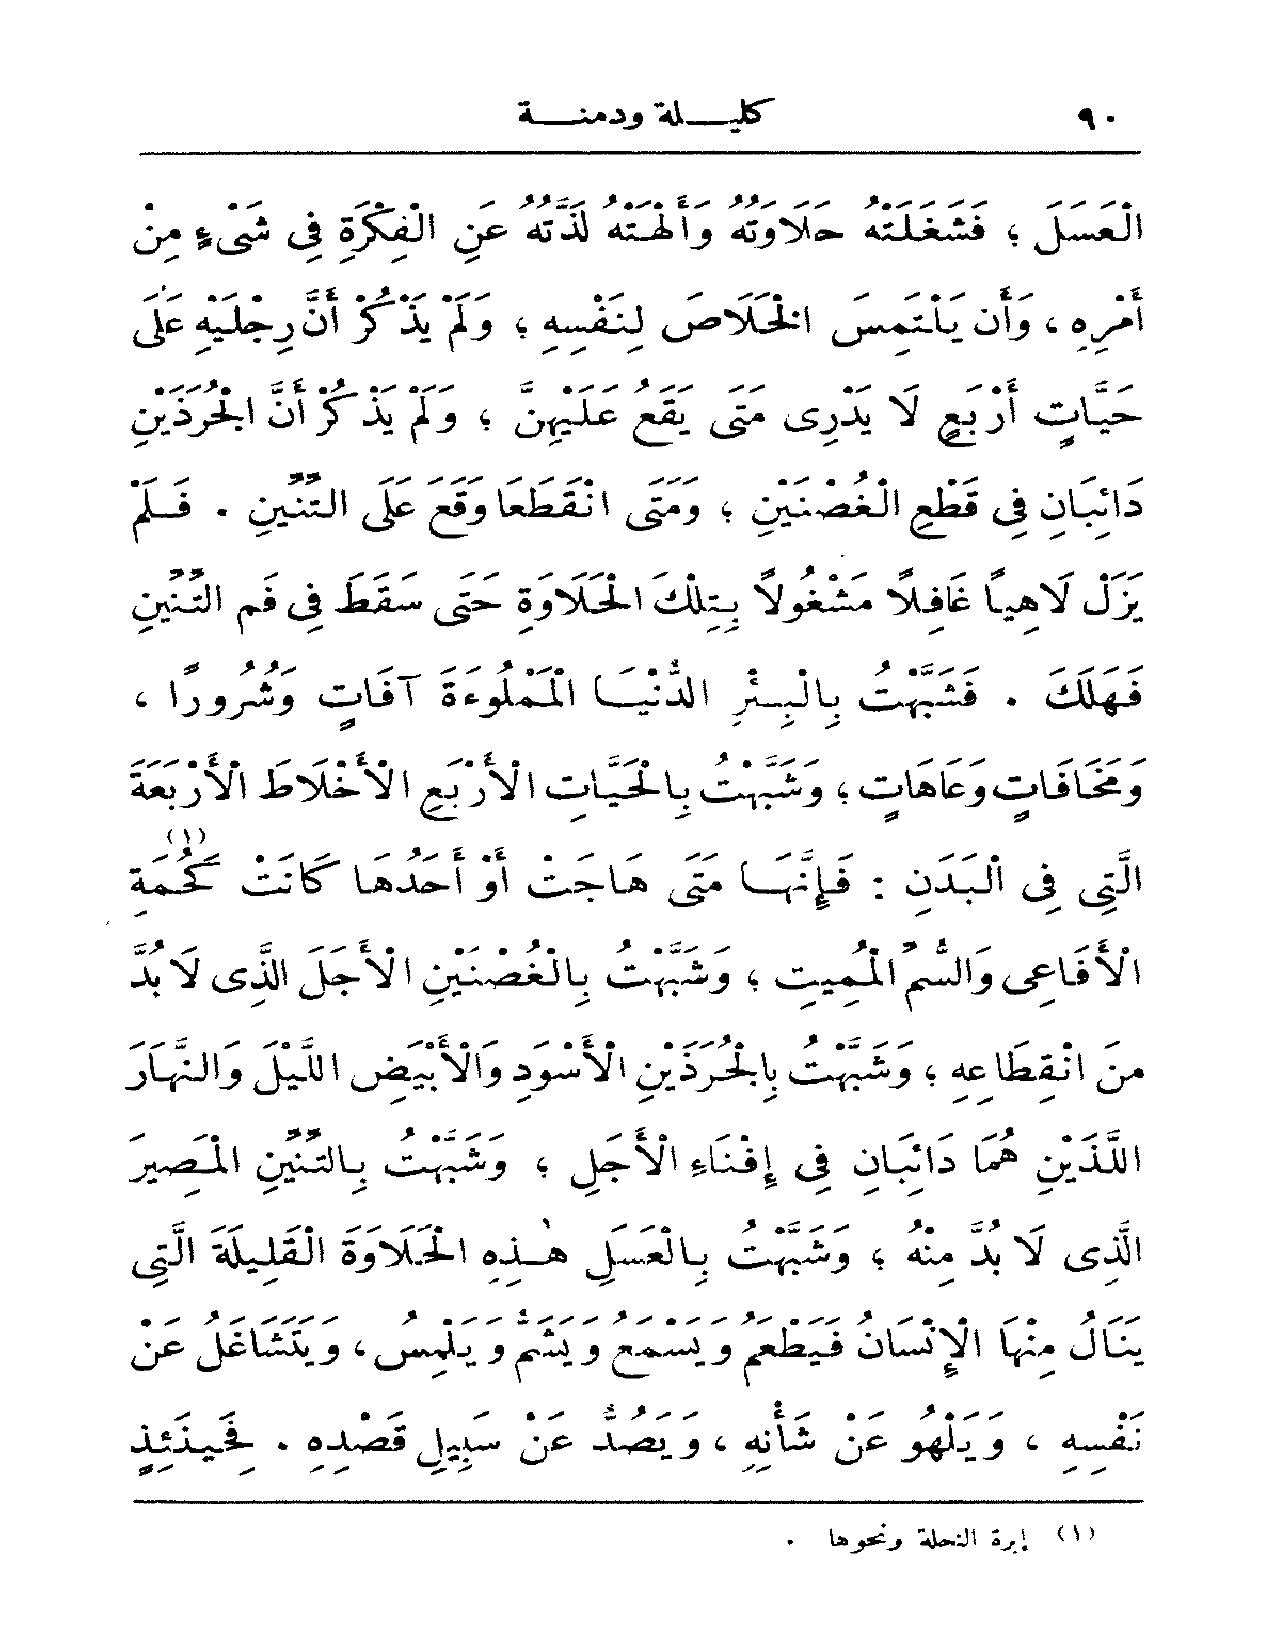 ٩٠ كليلة ودمنة
الْعَسَلِ ؛ فَشَغَلَتْهُ حَلَاوَتُهُ وَأَلْهَتْهُ لَذَّتُهُ عَنِ الْفِكْرَةِ فِى شَىْءٍ مِنْ
أَمْرِهِ ، وَأَن يَلْتَمِسَ الْخَلَاصَ لِنَفْسِهِ ؛ وَلَمْ يَذْكُرْ أَنَّ رِجْلَيْهِ عَلَى
حَيَّاتٍ أَرْبَعٍ لَا يَدْرِى مَتَى يَقَعُ عَلَيْهِنَّ ؛ وَلَمْ يَذْكُرْ أَنَّ الْجُرَذَيْنِ
دَائِبَانِ فِى قَطْعِ الْغُصْنَيْنِ ؛ وَمَتَى انْقَطَعَا وَقَعَ عَلَى التِّنِّينِ . فَلَمْ
يَزَلْ لَاهِياً غَافِلاً مَشْغُولاً بِتِلْكَ الْحَلَاوَةِ حَتَى سَقَطَ فِى فَمِ التِّنِّينِ
فَهَلَكَ . فَشَبَّهْتُ بِالْبِئْرِ الدُّنْيَا الْمَمْلُوءَةَ آفَاتٍ وَشُرُورًا ،
وَمَخَافَاتٍ وَعَاهَاتٍ ؛ وَشَبَّهْتُ بِالْحَيَّاتِ الْأَرْبَعِ الْأَخْلَاطَ الْأَرْبَعَةَ
الَّتِى فِى الْبَدَنِ : فَإِنَّهَا مَتَى هَاجَتْ أَوْ أَحَدُهَا كَانَتْ كَحُمَةِ (١)
الْأَفَاعِى وَالسُّمِّ الْمُمِيتِ ؛ وَشَبَّهْتُ بِالْغُصْنَيْنِ الْأَجَلَ الَّذِى لَا بُدَّ
مِنَ انْقِطَاعِهِ ؛ وَشَبَّهْتُ بِالْجُرَذَيْنِ الْأَسْوَدِ وَالْأَبْيَضِ اللَّيْلَ وَالنَّهَارَ
اللَّذَيْنِ هُمَا دَائِبَانِ فِى إِفْنَاءِ الْأَجَلِ ؛ وَشَبَّهْتُ بِالتِّنِّينِ الْمَصِيرَ
الَّذِى لَا بُدَّ مِنْهُ ؛ وَشَبَّهْتُ بِالْعَسَلِ هٰذِهِ الْحَلَاوَةَ الْقَلِيلَةَ الَّتِى
يَنَالُ مِنْهَا الْإِنْسَانُ فَيَطْعَمُ وَيَسْمَعُ وَيَشَمُّ وَيَلْمِسُ ، وَيَتَشَاغَلُ عَنْ
نَفْسِهِ ، وَيَلْهُو عَنْ شَأْنِهِ ، وَيَصُدُّ عَنْ سَبِيلِ قَصْدِهِ . فَحِينَئِذٍ
(١) إبرة النحلة ونحوها .